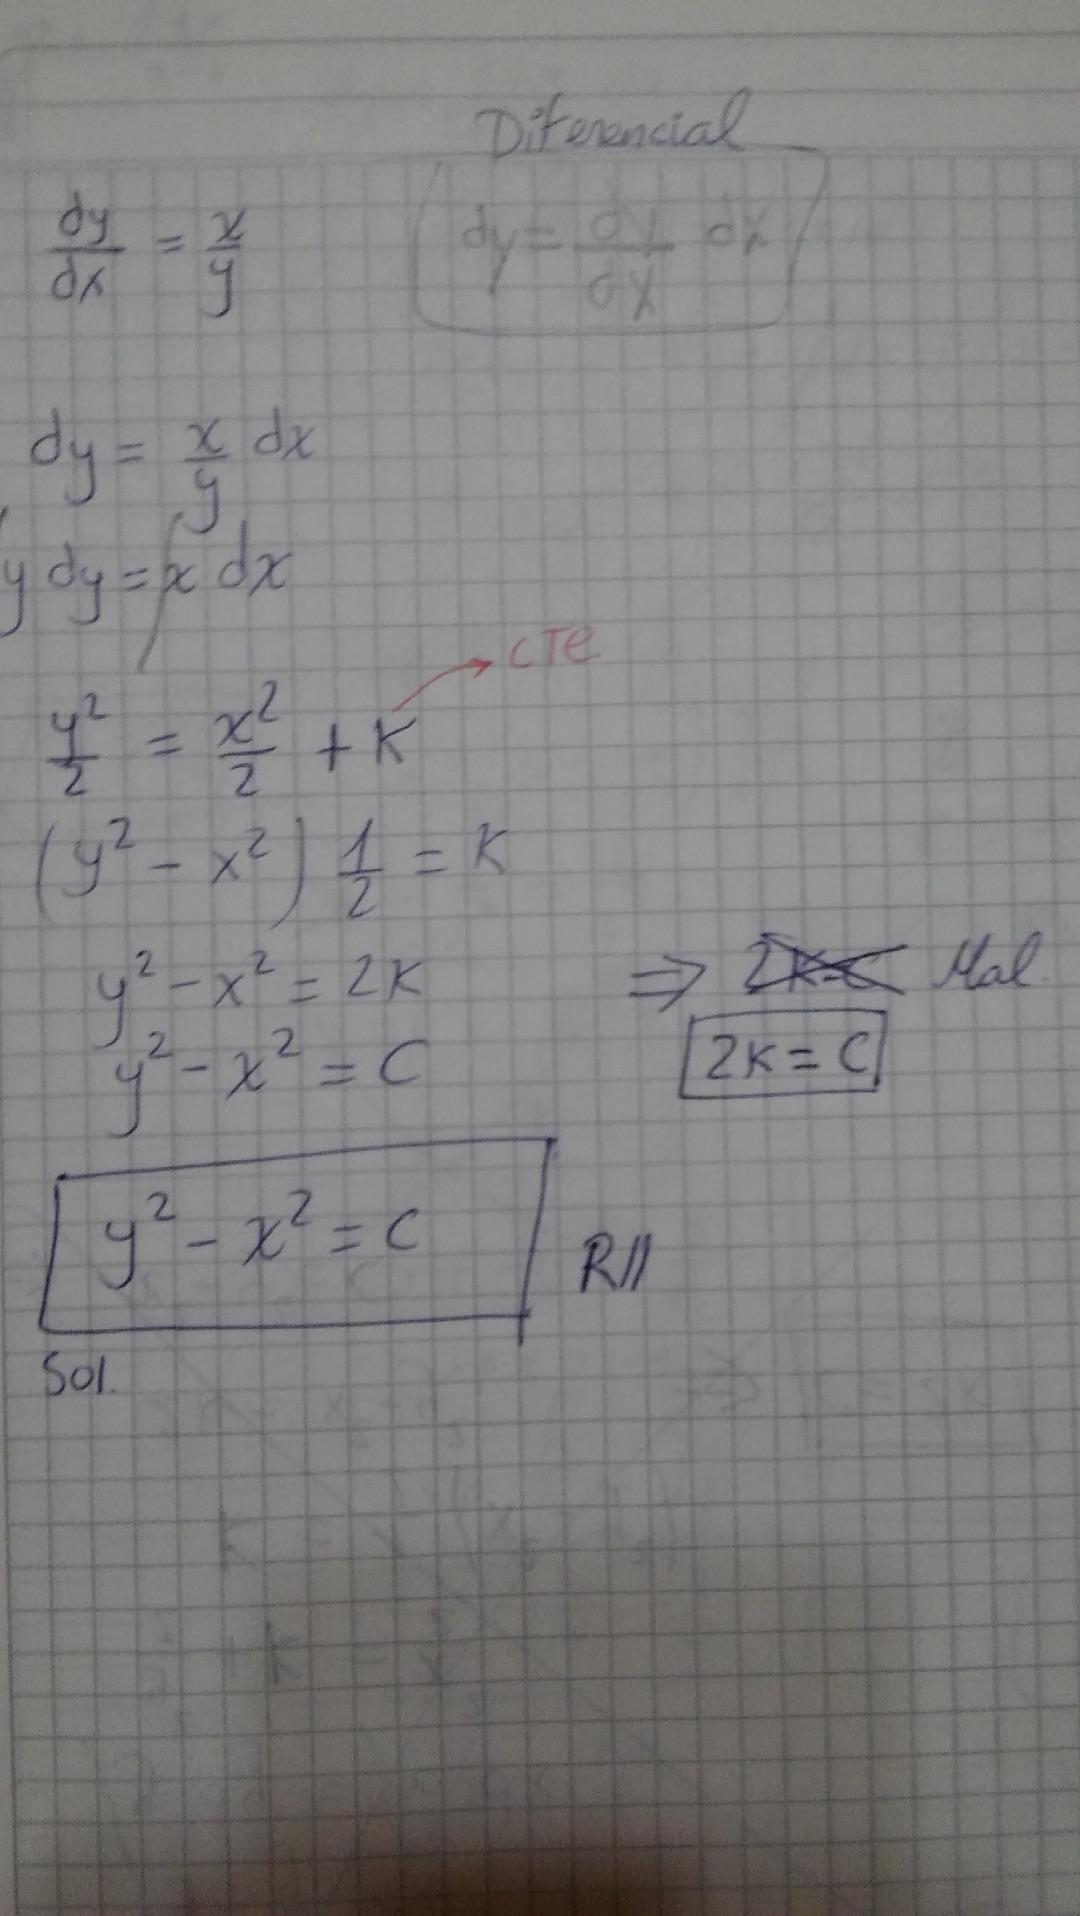 Diferencial
dy/dx = x/y
dy = dy/dx dx
dy = x/y dx
∫ y dy = ∫ x dx
CTE
y²/2 = x²/2 + K
(y² - x²) 1/2 = K
y² - x² = 2K ⇒ 2K=C Mal.
y² - x² = C 2K = C
y² - x² = C R//
Sol.